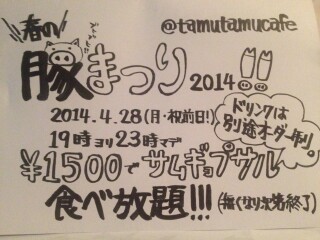 春の
@tamutamucafe
豚まつり2014!!
2014.4.28(月・祝前日!)
19時ヨリ23時マデ
ドリンクは
別途オーダー制
¥1500でサムギョプサル
食べ放題!!!(無くなり次第終了)